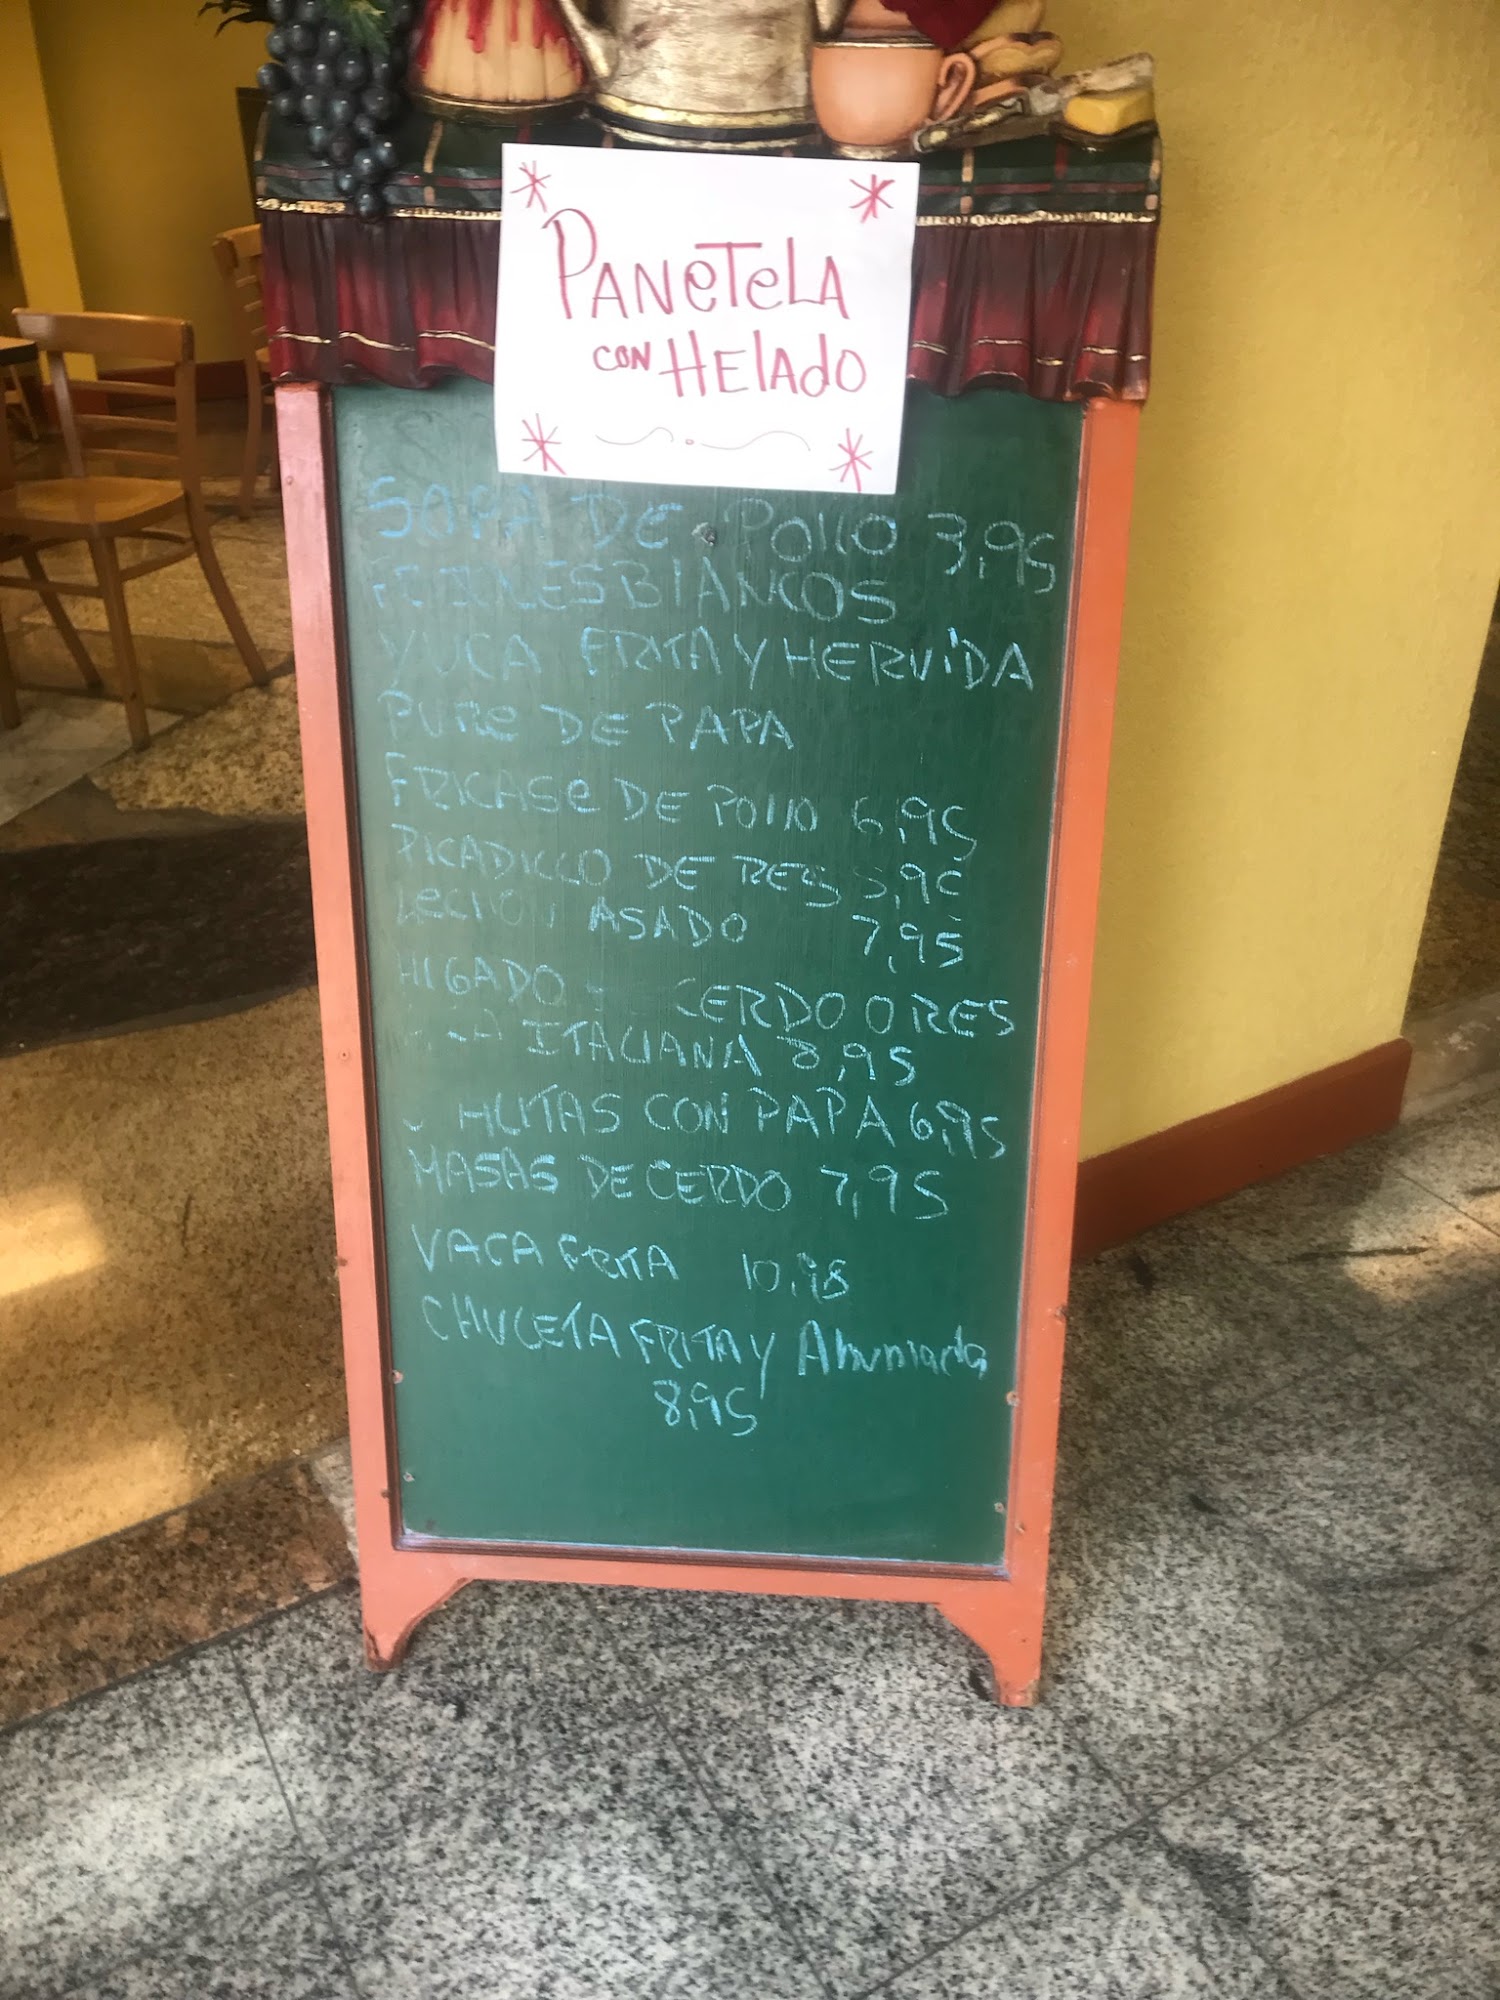 PANeTeLA
CON HElAdO
SOPA DE POLLO 3,95
FRIJOLES BLANCOS
YUCA FRITA Y HERVIDA
PURe DE PAPA
FRICASe DE POLLO 6,95
PICADILLO DE RES 5,95
LECHON ASADO 7,95
HIGADO CERDO O RES
A LA ITALIANA 8,95
HLITAS CON PAPA 6,95
MASAS DE CERDO 7,95
VACA FRITA 10,95
CHULETA FRITA Y Ahumada
8,95